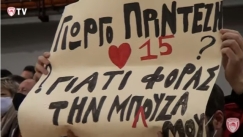 TV
ΓΙΩΡΓΟ ΠΑΝΤΕΖΗ
♥ 15 ?
? ΓΙΑΤΙ ΦΟΡΑΣ
ΤΗΝ ΜΠΛΟΥΖΑ
ΜΟΥ